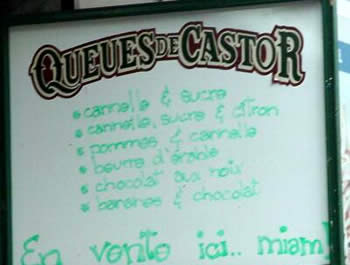 QUEUES DE CASTOR
• cannelle & sucre
• cannelle, sucre & citron
• pommes & cannelle
• beurre d'érable
• chocolat aux noix
• bananes & chocolat
En vente ici.. miam!